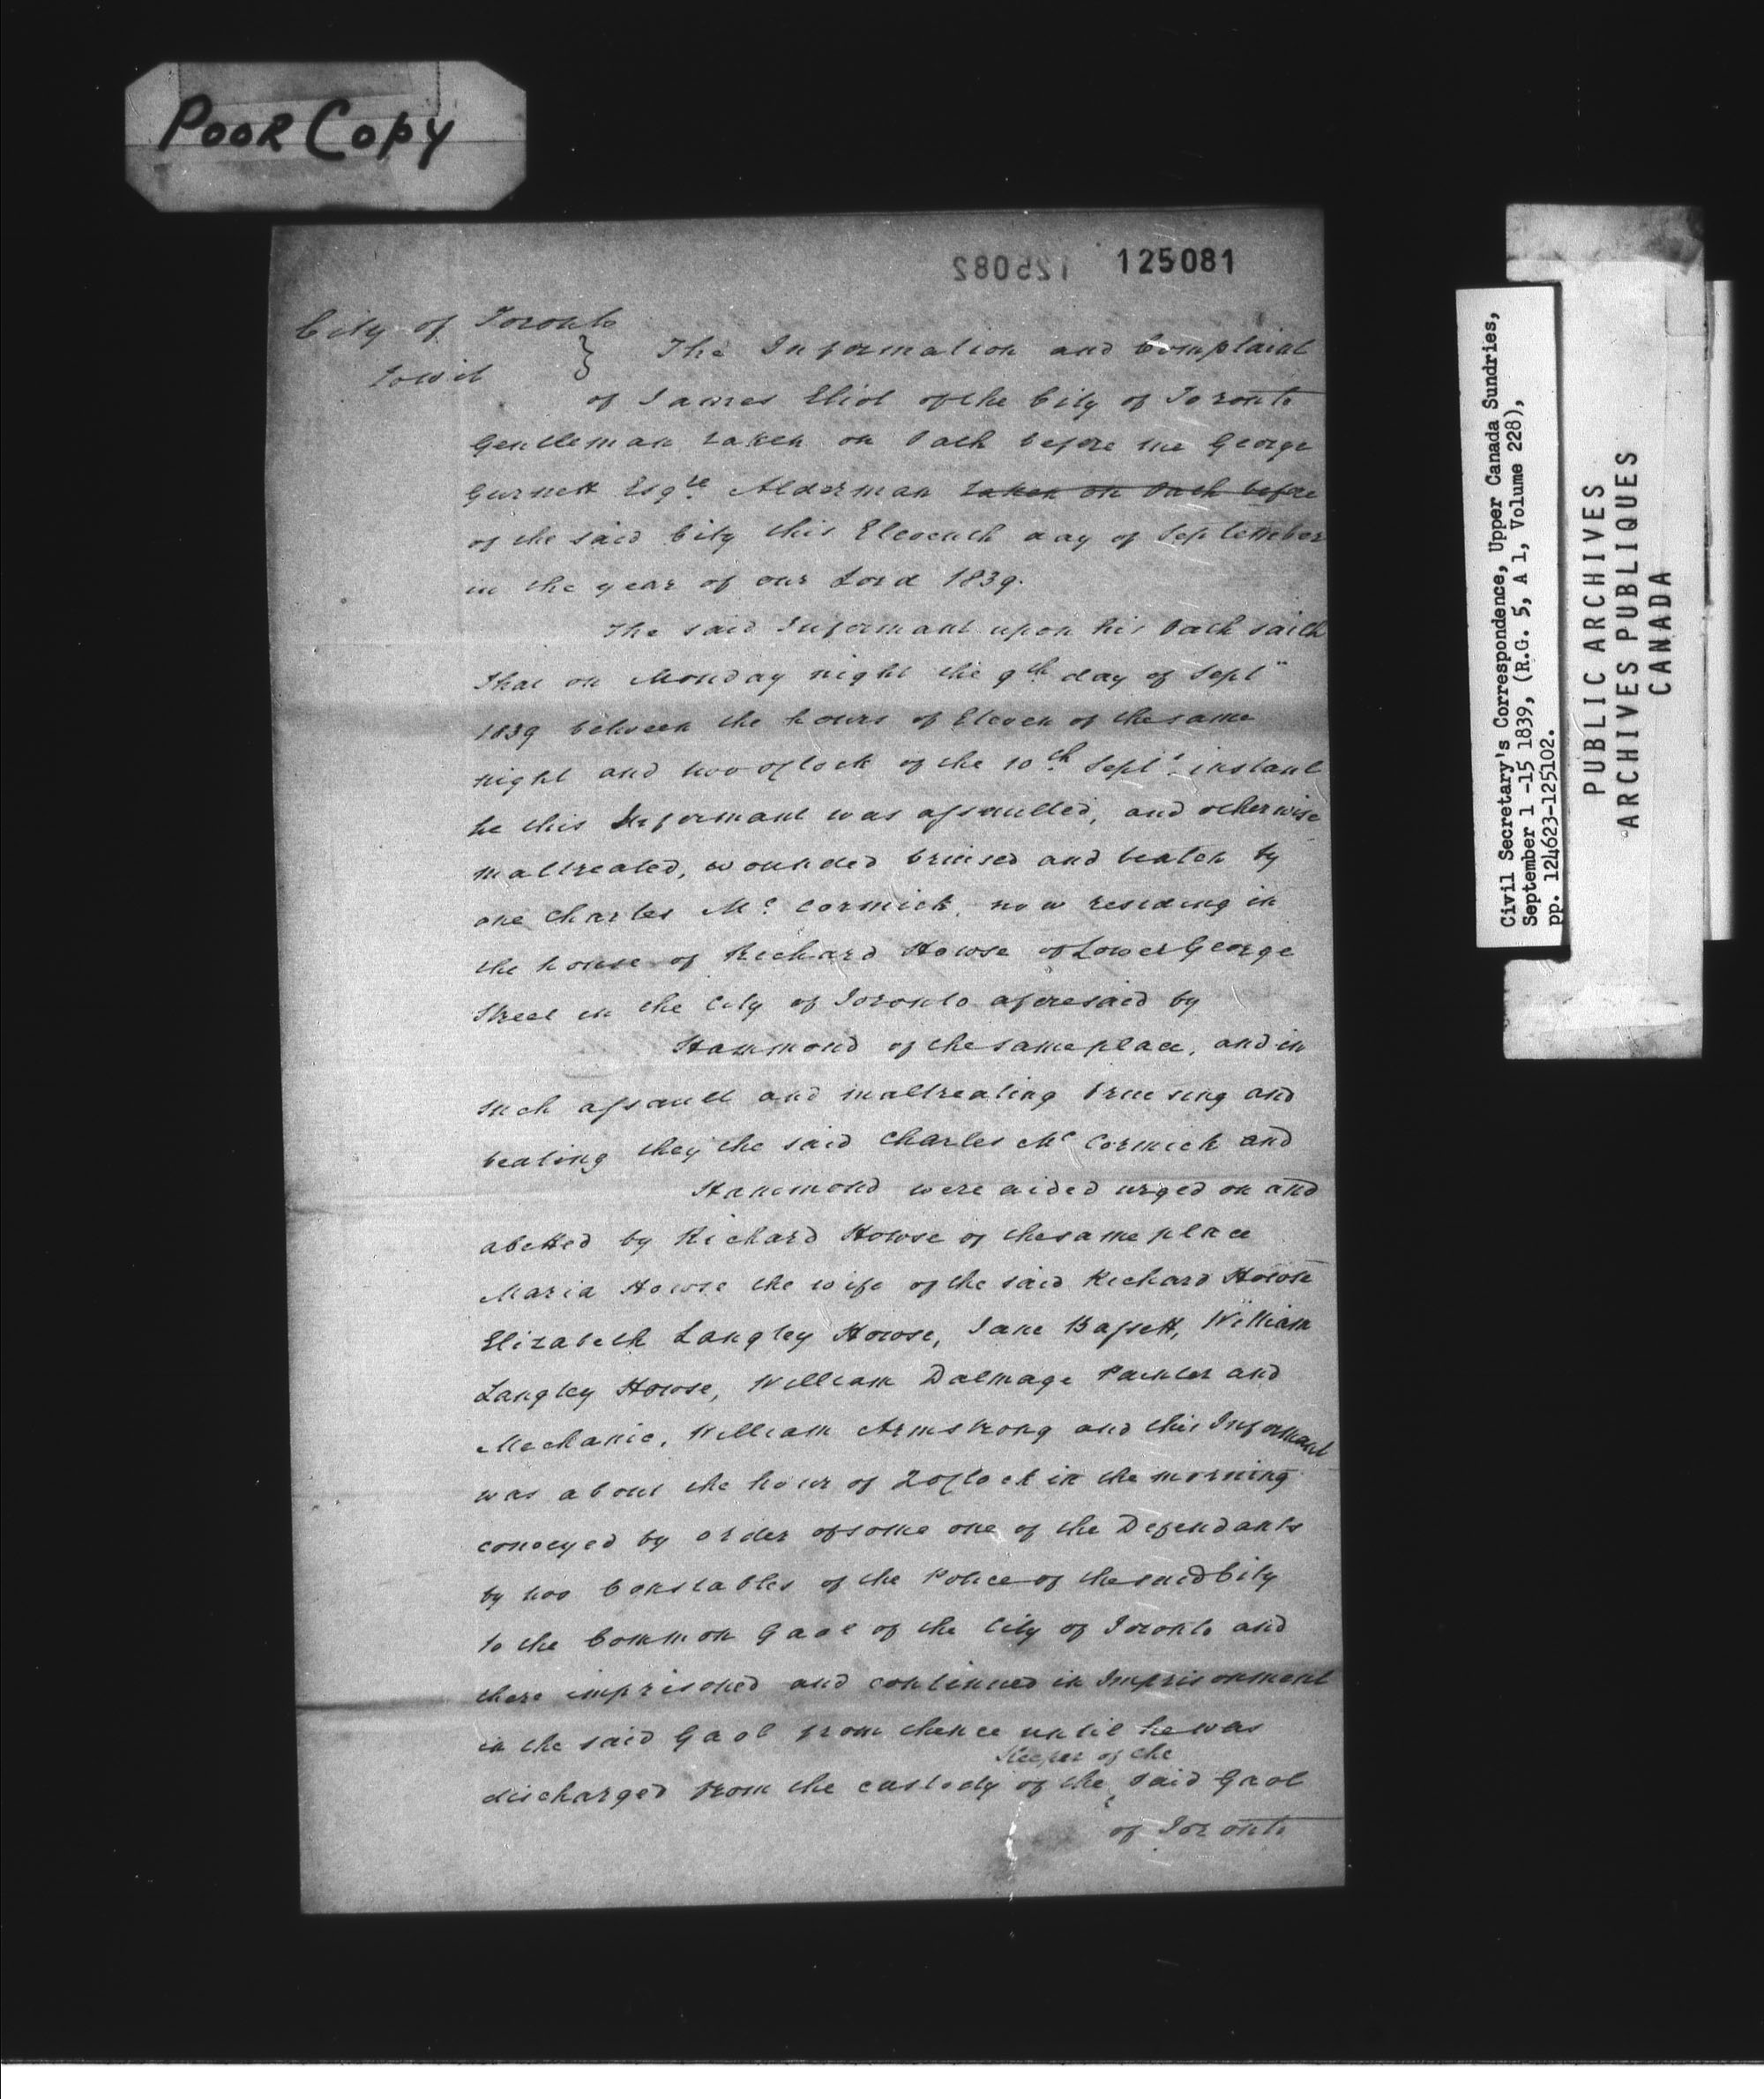 Poor Copy
125082 125081
City of Toronto
towit } The Information and Complaint
of James Eliot of the City of Toronto
Gentleman taken on Oath before me George
Gurnett Esqre Alderman taken on Oath before
of the said City this Eleventh day of September
in the year of our Lord 1839.
The said Informant upon his Oath saith
that on Monday night the 9th day of Sept
1839 between the hours of Eleven of the same
night and two oClock of the 10th Sept. instant
he this Informant was assaulted, and otherwise
maltreated, wounded bruised and beaten by
one Charles Mc Cormick, now residing in
the house of Richard Howse of Lower George
Street in the City of Toronto aforesaid by
Hammond of the same place, and in
such assault and maltreating bruising and
beating they the said Charles Mc Cormick and
Hammond were aided urged on and
abetted by Richard Howse of the same place
Maria Howse the wife of the said Richard Howse
Elizabeth Langley Howse, Jane Bassett, William
Langley Howse, William Dalmage Painter and
Mechanic, William Armstrong and this Informant
was about the hour of 2 oClock in the morning
conveyed by order of some one of the Defendants
by two Constables of the Police of the said City
to the Common Gaol of the City of Toronto and
there imprisoned and continued in Imprisonment
in the said Gaol from thence until he was
Keeper of the
discharged from the custody of the said Gaol
of Toronto
Civil Secretary's Correspondence, Upper Canada Sundries,
September 1 -15 1839, (R.G. 5, A 1, Volume 228),
pp. 124623-125102.
PUBLIC ARCHIVES
ARCHIVES PUBLIQUES
CANADA